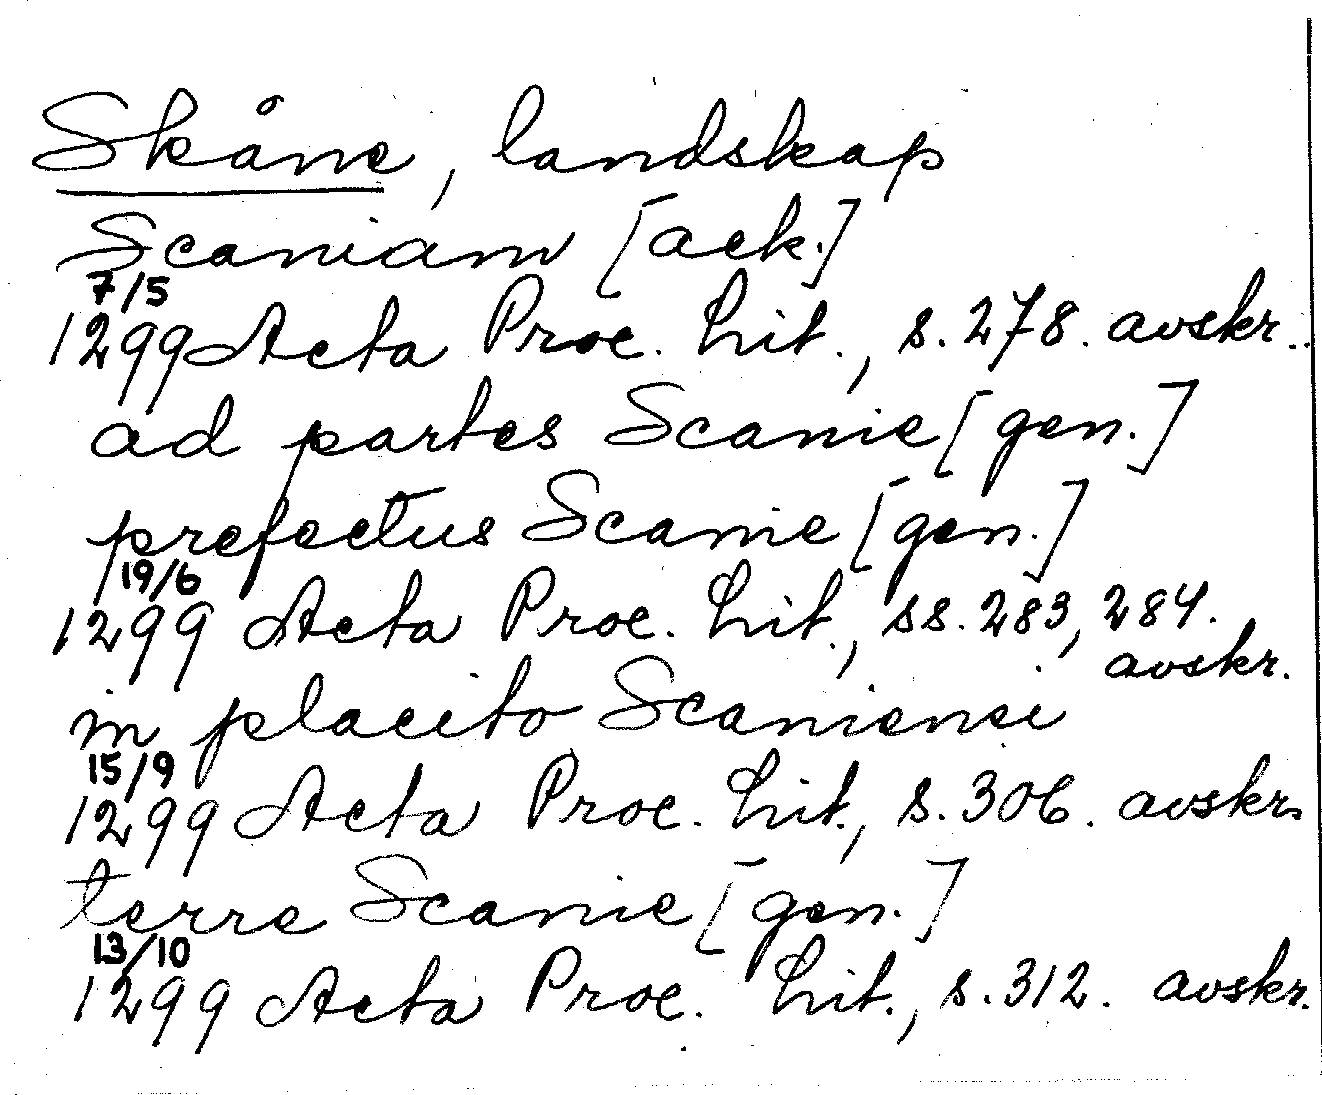 Skåne, landskap
Scaniam [ack.]
7/5
1299 Acta Proc. Lit., s. 278. avskr.
ad partes Scanie [gen.]
prefectus Scanie [gen.]
19/6
1299 Acta Proc. Lit., ss. 283, 284.
avskr.
in placito Scaniensi
15/9
1299 Acta Proc. Lit., s. 306. avskr.
terre Scanie [gen.]
13/10
1299 Acta Proc. Lit., s. 312. avskr.